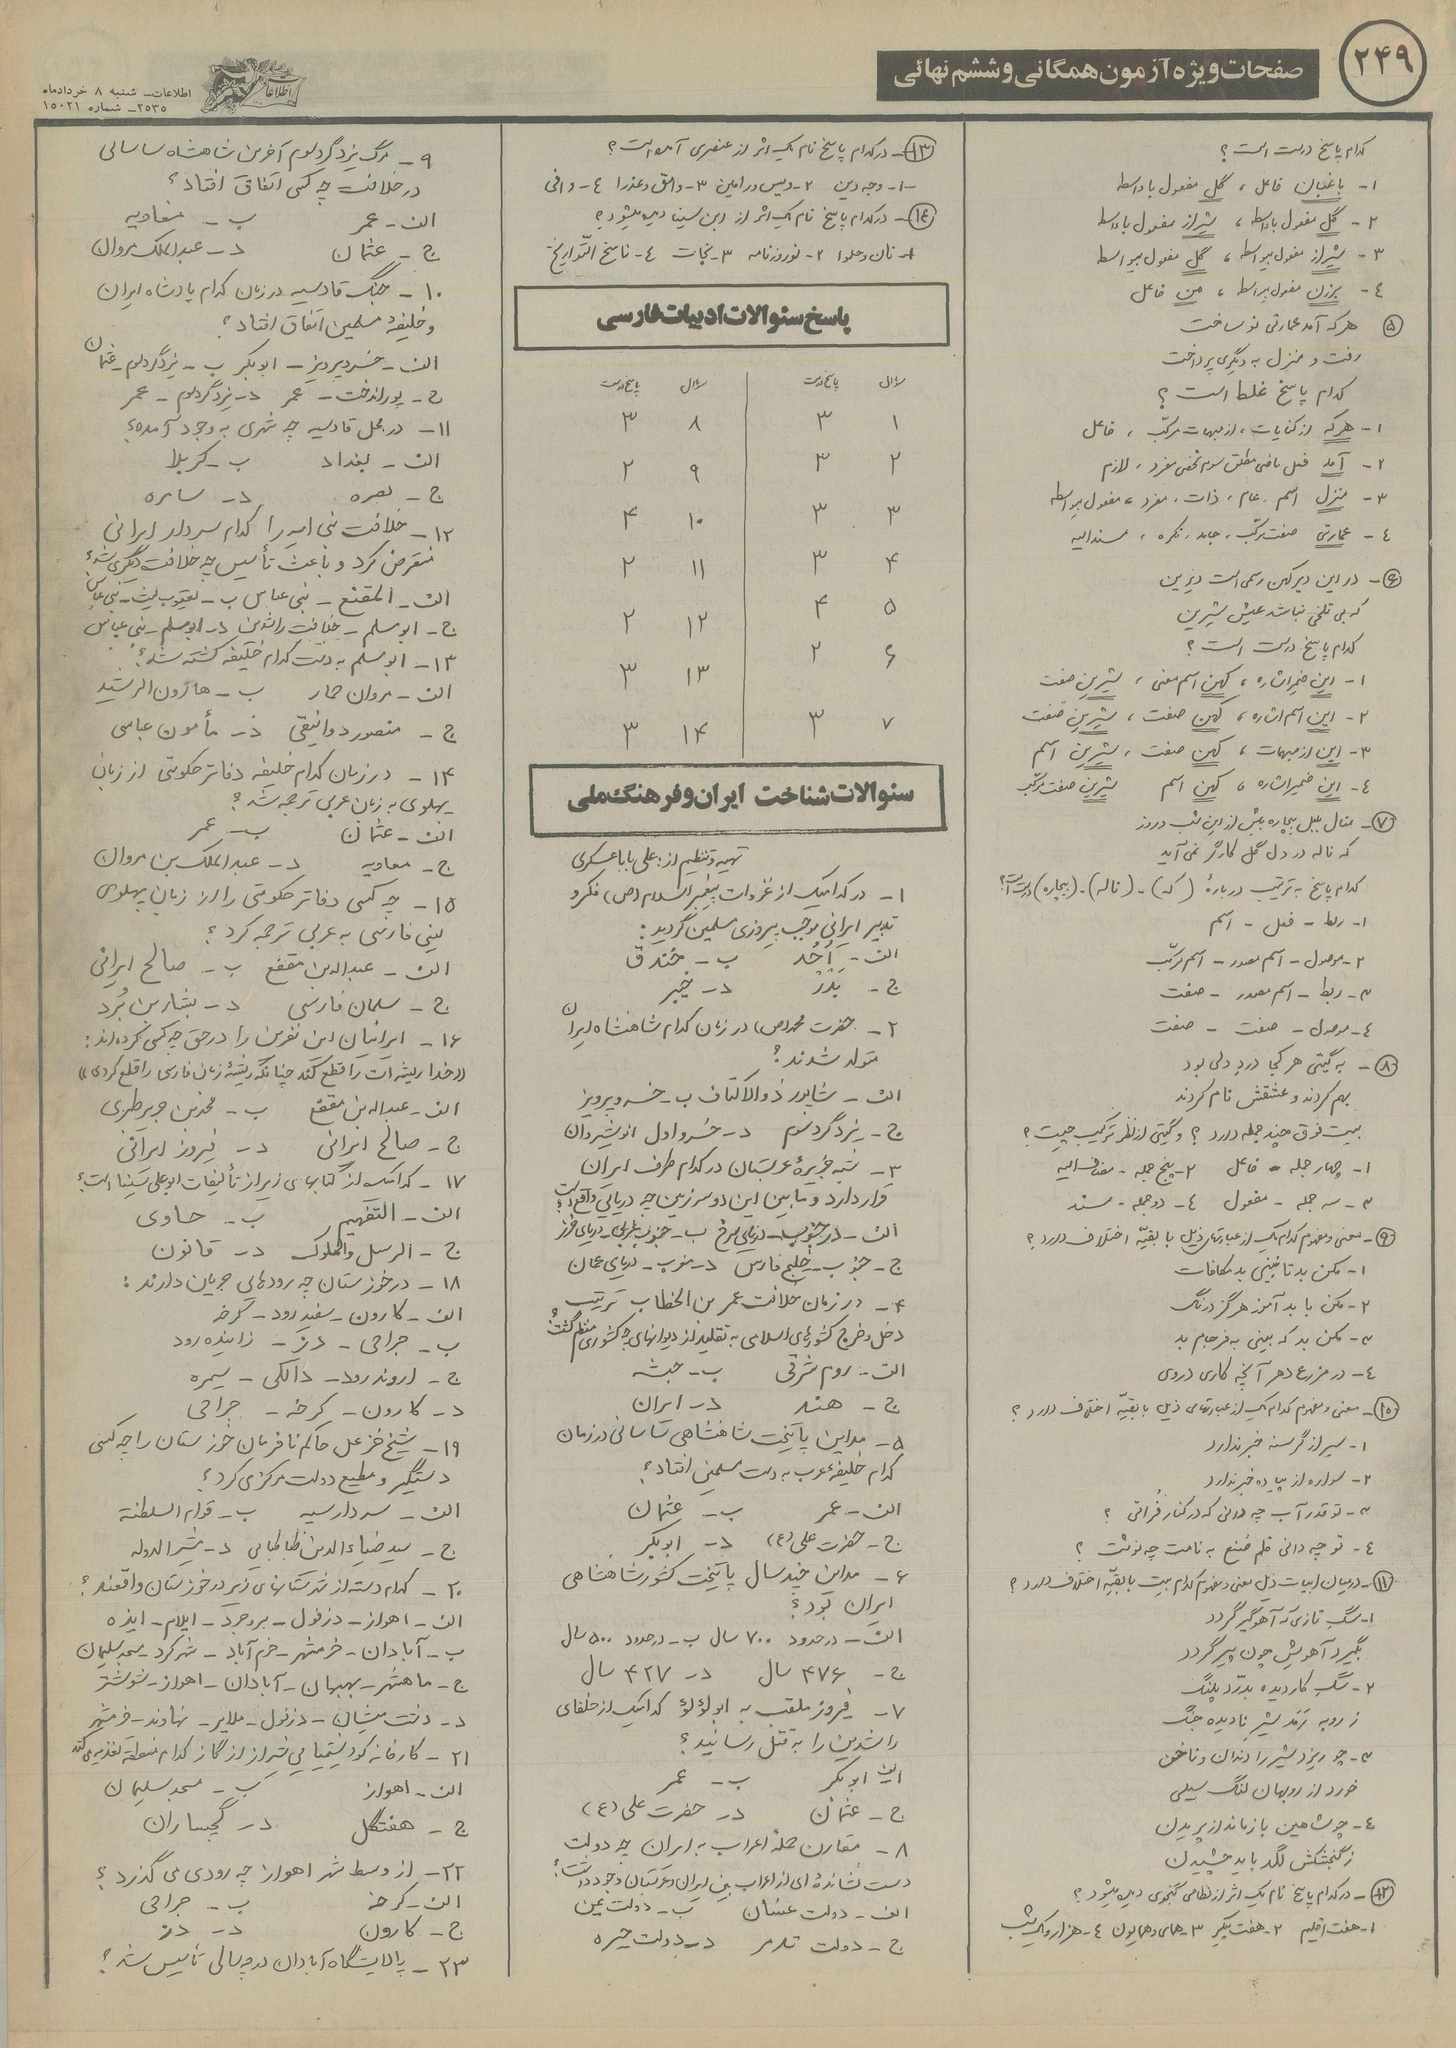 ۲۴۹
صفحات ویژه آزمون همگانی و ششم نهائی
اطلاعات
اطلاعات ـ شنبه ۸ خردادماه
۲۵۳۵ ـ شماره ۱۵۰۲۱
کدام پاسخ درست است ؟
۱- باغبان فاعل ، گل مفعول باواسطه
۲- گل مفعول باواسطه ، شیراز مفعول باواسطه
۳- شیراز مفعول بیواسطه ، گل مفعول بیواسطه
۴- برزن مفعول بیواسطه ، من فاعل
۵ هر که آمد عمارتی نو ساخت
رفت و منزل به دیگری پرداخت
کدام پاسخ غلط است ؟
۱- هرکه از کنایات ، از مبهمات مرکّب ، فاعل
۲- آمد فعل ماضی مطلق سوم شخص مفرد ، لازم
۳- منزل اسم ، عام ، ذات ، مفرد ، مفعول بیواسطه
۴- عمارتی صفت مرکّب ، جامد ، نکره ، مسندالیه
۶- در این دیر کهن رسمی است دیرین
که بی تلخی نباشد عیش شیرین
کدام پاسخ درست است ؟
۱- این ضمیر اشاره ، کهن اسم معنی ، شیرین صفت
۲- این اسم اشاره ، کهن صفت ، شیرین صفت
۳- این از مبهمات ، کهن صفت ، شیرین اسم
۴- این ضمیر اشاره ، کهن اسم شیرین صفت مرکّب
۷- منال بلبل بیچاره بیش از این شب و روز
که ناله در دل گل کارگر نمی آید
کدام پاسخ به ترتیب دربارهٔ (که) - (ناله) - (بیچاره) درست است؟
۱- ربط - فعل - اسم
۲- موصول - اسم مصدر - اسم مرکّب
۳- ربط - اسم مصدر - صفت
۴- موصول - صفت - صفت
۸- به گیتی هر کجا درد دلی بود
بهم کردند و عشقش نام کردند
بیت فوق چند جمله دارد ؟ و گیتی از نظر ترکیب چیست ؟
۱- چهار جمله - فاعل ۲- پنج جمله - مضاف الیه
۳- سه جمله - مفعول ۴- دو جمله - مسند
۹- معنی و مفهوم کدام یک از عبارتهای ذیل با بقیّه اختلاف دارد ؟
۱- مکن بد تا نبینی بد مکافات
۲- مکن یا بد آموز هرگز درنگ
۳- مکن بد که بینی به فرجام بد
۴- در مزرع دهر آنچه کاری دروی
۱۰- معنی و مفهوم کدام یک از عبارتهای ذیل با بقیّه اختلاف دارد ؟
۱- سیر از گرسنه خبر ندارد
۲- سواره از پیاده خبر ندارد
۳- تو قدر آب چه دانی که در کنار فُراتی ؟
۴- تو چه دانی قلم صُنع به نامت چه نوشت ؟
۱۱- در میان ابیات ذیل معنی و مفهوم کدام بیت با بقیّه اختلاف دارد ؟
۱- سگ تازی که آهو گیر گردد
بگیرد آهویش چون پیر گردد
۲- سگ کاردیده بدرّد پلنگ
ز روبه رَمَد شیر نادیده جنگ
۳- چو ریزد شیر را دندان و ناخن
خورد از روبهان لنگ سیلی
۴- چو شاهین بازماند از پریدن
ز گنجشکش لگد باید چشیدن
۱۲- در کدام پاسخ نام یک اثر از نظامی گنجوی دیده میشود ؟
۱- هفت اقلیم ۲- هفت پیکر ۳- همای و همایون ۴- هزار و یک شب
۱۳- در کدام پاسخ نام یک اثر از عنصری آمده است ؟
۱- وجه دین ۲- ویس و رامین ۳- وامق و عذرا ۴- وافی
۱۴- در کدام پاسخ نام یک اثر از ابن سینا دیده میشود ؟
۱- نان و حلوا ۲- نوروزنامه ۳- نجات ۴- ناسخ التّواریخ
پاسخ سئوالات ادبیات فارسی
سؤال پاسخ درست سؤال پاسخ درست
۱ ۳ ۸ ۳
۲ ۳ ۹ ۲
۳ ۳ ۱۰ ۴
۴ ۳ ۱۱ ۲
۵ ۴ ۱۲ ۲
۶ ۲ ۱۳ ۳
۷ ۳ ۱۴ ۳
سئوالات شناخت ایران و فرهنگ ملی
تهیه و تنظیم از : علی باباعسکری
۱- در کدامیک از غزوات پیغمبر اسلام (ص) فکر و
تدبیر ایرانی موجب پیروزی مسلمین گردید :
الف - اُحُد ب - خندق
ج - بَدْرْ د - خیبر
۲- حضرت محمد (ص) در زمان کدام شاهنشاه ایران
متولد شدند ؟
الف - شاپور ذوالاکتاف ب - خسرو پرویز
ج - یزدگرد سوم د - خسرو اول انوشیروان
۳- شبه جزیرهٔ عربستان در کدام طرف ایران
قرار دارد و مابین این دو سرزمین چه دریایی واقع است ؟
الف - در جنوب - دریای سرخ ب - جنوب غربی - دریای خزر
ج - جنوب - خلیج فارس د - جنوب - دریای عمان
۴- در زمان خلافت عمر بن الخطاب ترتیب
دخل و خرج کشورهای اسلامی به تقلید از دیوانهای چه کشوری منظم گشت ؟
الف - روم شرقی ب - حبشه
ج - هند د - ایران
۵- مداین پایتخت شاهنشاهی ساسانی در زمان
کدام خلیفهٔ عرب به دست مسلمین افتاد ؟
الف - عمر ب - عثمان
ج - حضرت علی (ع) د - ابوبکر
۶- مداین چند سال پایتخت کشور شاهنشاهی
ایران بود ؟
الف - در حدود ۷۰۰ سال ب - در حدود ۵۰۰ سال
ج - ۴۷۶ سال د - ۴۲۷ سال
۷- فیروز ملقب به ابولؤلؤ کدامیک از خلفای
راشدین را به قتل رسانید ؟
الف ابوبکر ب - عمر
ج - عثمان د - حضرت علی (ع)
۸- مقارن حملهٔ اعراب به ایران چه دولت
دست نشانده ای از اعراب بین ایران و عربستان وجود داشت ؟
الف - دولت غسّان ب - دولت یمن
ج - دولت تدمر د - دولت حیره
۹- مرگ یزدگرد سوم آخرین شاهنشاه ساسانی
در خلافت چه کسی اتفاق افتاد ؟
الف - عمر ب - معاویه
ج - عثمان د - عبدالملک مروان
۱۰- جنگ قادسیه در زمان کدام پادشاه ایران
و خلیفهٔ مسلمین اتفاق افتاد ؟
الف - خسرو پرویز - ابوبکر ب - یزدگرد سوم - عثمان
ج - پوراندخت - عمر د - یزدگرد سوم - عمر
۱۱- در محل قادسیه چه شهری به وجود آمده ؟
الف - بغداد ب - کربلا
ج - بصره د - سامره
۱۲- خلافت بنی امیه را کدام سردار ایرانی
منقرض کرد و باعث تأسیس چه خلافت دیگری شد ؟
الف - المقنع - بنی عباس ب - یعقوب لیث - بنی عباس
ج - ابومسلم - خلافت راشدین د - ابومسلم - بنی عباس
۱۳- ابومسلم به دست کدام خلیفه کشته شد ؟
الف - مروان حمار ب - هارون الرشید
ج - منصور دوانیقی د - مأمون عباسی
۱۴- در زمان کدام خلیفه دفاتر حکومتی از زبان
پهلوی به زبان عربی ترجمه شد ؟
الف - عثمان ب - عمر
ج - معاویه د - عبدالملک بن مروان
۱۵- چه کسی دفاتر حکومتی را از زبان پهلوی
یعنی فارسی به عربی ترجمه کرد ؟
الف - عبداله بن مقفع ب - صالح ایرانی
ج - سلمان فارسی د - بشار بن بُرد
۱۶- ایرانیان این نفرین را در حق چه کسی کرده اند :
((خدا ریشه ات را قطع کند چنانکه ریشهٔ زبان فارسی را قطع کردی))
الف - عبداله بن مقفع ب - محمدبن جریر طبری
ج - صالح ایرانی د - فیروز ایرانی
۱۷- کدامیک از کتابهای زیر از تألیفات ابوعلی سینا است ؟
الف - التفهیم ب - حاوی
ج - الرسل والملوک د - قانون
۱۸- در خوزستان چه رودهایی جریان دارند :
الف - کارون - سفیدرود - کرخه
ب - جراحی - دز - زاینده رود
ج - اروندرود - دالکی - سیمره
د - کارون - کرخه - جراحی
۱۹- شیخ خزعل حاکم نافرمان خوزستان را چه کسی
دستگیر و مطیع دولت مرکزی کرد ؟
الف - سردار سپه ب - قوام السلطنه
ج - سید ضیاءالدین طباطبایی د - مشیرالدوله
۲۰- کدام دسته از شهرستانهای زیر در خوزستان واقعند ؟
الف - اهواز - دزفول - بروجرد - ایلام - ایذه
ب - آبادان - خرمشهر - خرم آباد - شهرکرد - مسجدسلیمان
ج - ماهشهر - بهبهان - آبادان - اهواز - شوشتر
د - دشت میشان - دزفول - ملایر - نهاوند - خرمشهر
۲۱- کارخانه کود شیمیایی شیراز از گاز کدام منطقه تغذیه می کند
الف - اهواز ب - مسجد سلیمان
ج - هفتگل د - گچساران
۲۲- از وسط شهر اهواز چه رودی می گذرد ؟
الف - کرخه ب - جراحی
ج - کارون د - دز
۲۳- پالایشگاه آبادان در چه سالی تأسیس شد ؟